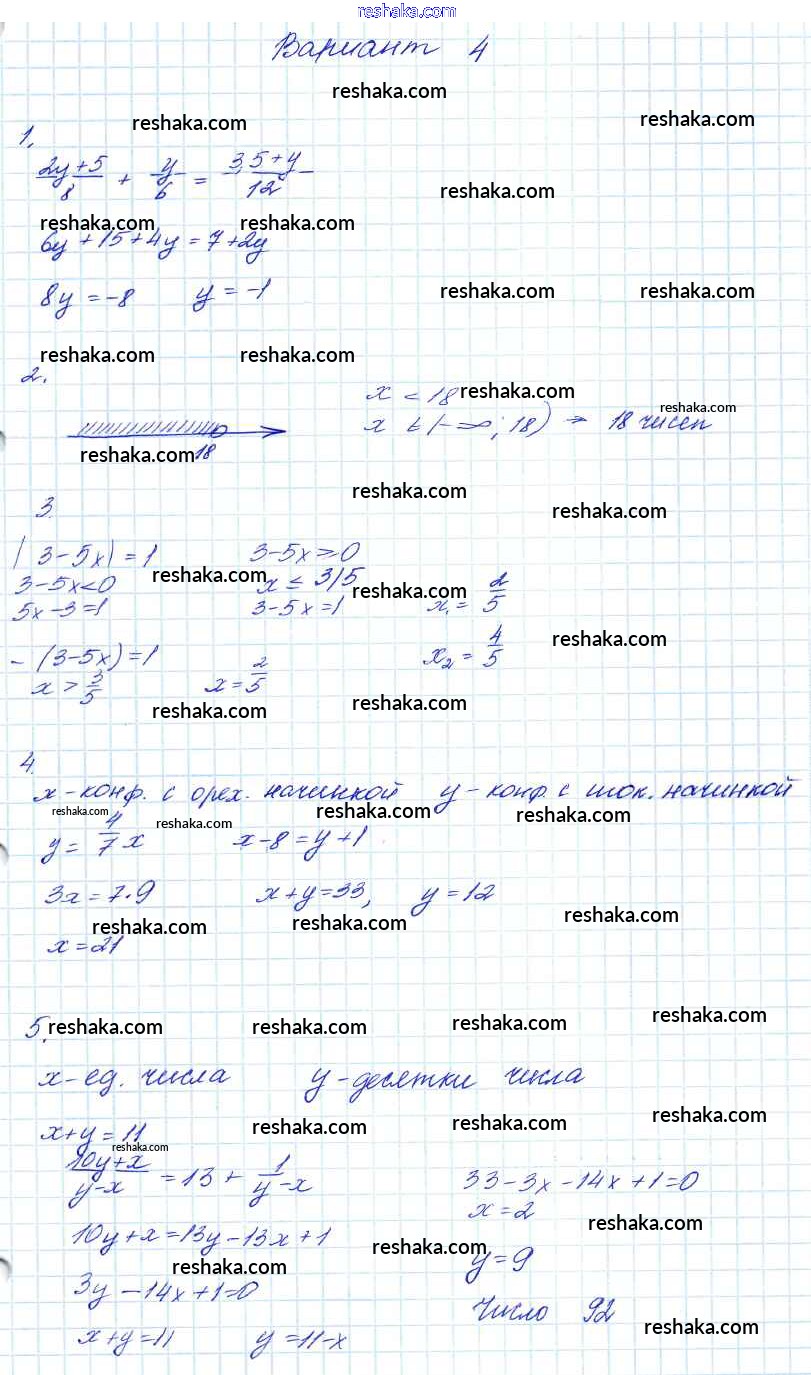 reshaka.com
Вариант 4
reshaka.com
reshaka.com reshaka.com
1.
(2y+5)/8 + y/6 = (3,5+y)/12
reshaka.com
reshaka.com reshaka.com
6y+15+4y=7+2y
8y=-8 y=-1
reshaka.com reshaka.com
reshaka.com reshaka.com
2.
x < 18 reshaka.com
x ∈ (-∞; 18) → 18 чисел reshaka.com
reshaka.com 18
reshaka.com
3. reshaka.com
|3-5x|=1 3-5x≥0
3-5x<0 reshaka.com x ≤ 3/5 reshaka.com
5x-3=1 3-5x=1 x₁= 2/5
reshaka.com
-(3-5x)=1 x₂= 4/5
x > 3/5 x= 2/5
reshaka.com reshaka.com
4.
x-конф. с орех. начинкой y-конф. с шок. начинкой
reshaka.com reshaka.com reshaka.com reshaka.com
y= 4/7 x x-8=y+1
3x=7·9 x+y=33, y=12
reshaka.com reshaka.com reshaka.com
x=21
5. reshaka.com reshaka.com reshaka.com reshaka.com
x-ед. числа y-десятки числа
reshaka.com reshaka.com reshaka.com
x+y=11
reshaka.com
(10y+x)/(y-x) = 13 + 1/(y-x) 33-3x-14x+1=0
x=2
reshaka.com
10y+x=13y-13x+1
reshaka.com reshaka.com
y=9
3y-14x+1=0
Число 92
reshaka.com
x+y=11 y=11-x